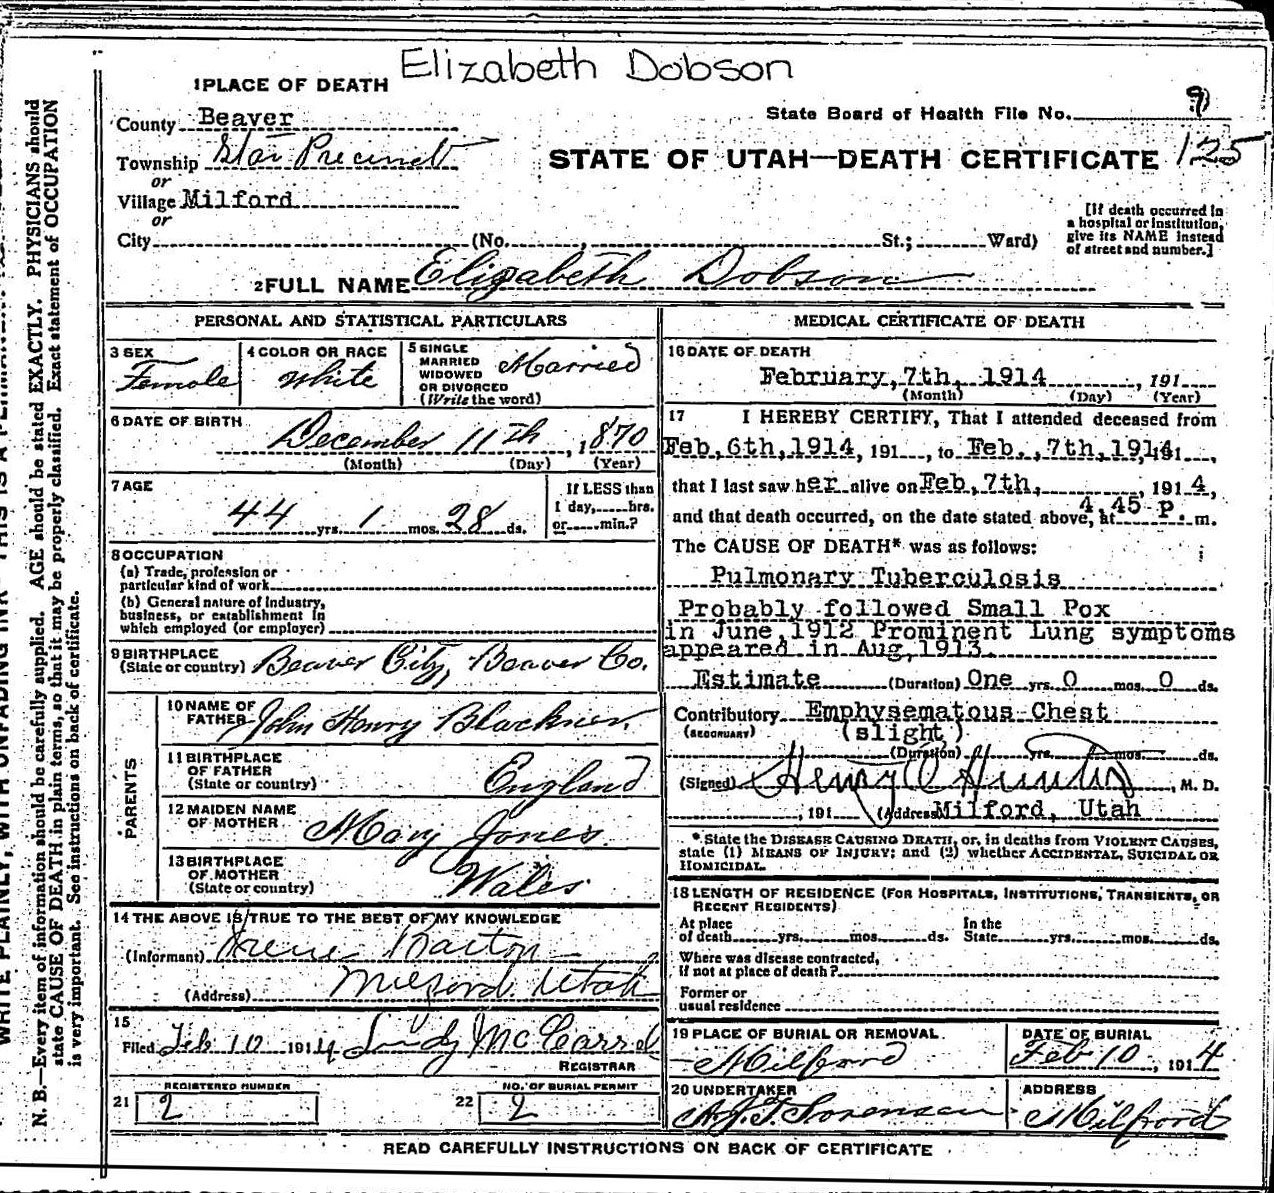 Elizabeth Dobson
1 PLACE OF DEATH
State Board of Health File No. 9
County Beaver
125
Township Star Precinct
STATE OF UTAH—DEATH CERTIFICATE
or
Village Milford
or
[If death occurred in
a hospital or institution,
give its NAME instead
of street and number.]
City (No. , St.; Ward)
2 FULL NAME Elizabeth Dobson
PERSONAL AND STATISTICAL PARTICULARS
3 SEX
Female
4 COLOR OR RACE
White
5 SINGLE
MARRIED
WIDOWED
OR DIVORCED
(Write the word)
Married
6 DATE OF BIRTH
December 11th, 1870
(Month) (Day) (Year)
7 AGE
44 yrs. 1 mos. 28 ds.
If LESS than
1 day, hrs.
or min.?
8 OCCUPATION
(a) Trade, profession or
particular kind of work
(b) General nature of industry,
business, or establishment in
which employed (or employer)
9 BIRTHPLACE
(State or country) Beaver City, Beaver Co.
PARENTS
10 NAME OF
FATHER John Henry Blackner.
11 BIRTHPLACE
OF FATHER
(State or country) England
12 MAIDEN NAME
OF MOTHER Mary Jones.
13 BIRTHPLACE
OF MOTHER
(State or country) Wales
14 THE ABOVE IS TRUE TO THE BEST OF MY KNOWLEDGE
(Informant) Irene Barton
(Address) Milford Utah
15
Filed Feb 10 1914 McCarrel
REGISTRAR
REGISTERED NUMBER
21 2
NO. OF BURIAL PERMIT
22 2
MEDICAL CERTIFICATE OF DEATH
16 DATE OF DEATH
February, 7th, 1914 , 191
(Month) (Day) (Year)
17 I HEREBY CERTIFY, That I attended deceased from
Feb, 6th, 1914, 191 , to Feb., 7th, 1914, 191 ,
that I last saw her alive on Feb, 7th, , 1914,
and that death occurred, on the date stated above, at 4,45 p. m.
The CAUSE OF DEATH* was as follows:
Pulmonary Tuberculosis
Probably followed Small Pox
in June, 1912 Prominent Lung symptoms
appeared in Aug, 1913.
Estimate (Duration) One yrs. 0 mos. 0 ds.
Contributory Emphysematous Chest
(SECONDARY) (slight)
(Duration) yrs. mos. ds.
(Signed) Henry , M. D.
, 191 (Address) Milford, Utah
* State the DISEASE CAUSING DEATH, or, in deaths from VIOLENT CAUSES,
state (1) MEANS OF INJURY; and (2) whether ACCIDENTAL, SUICIDAL OR
HOMICIDAL.
18 LENGTH OF RESIDENCE (FOR HOSPITALS, INSTITUTIONS, TRANSIENTS, OR
RECENT RESIDENTS)
At place
of death yrs. mos. ds.
In the
State yrs. mos. ds.
Where was disease contracted,
if not at place of death?
Former or
usual residence
19 PLACE OF BURIAL OR REMOVAL
Milford
DATE OF BURIAL
Feb 10, 1914
20 UNDERTAKER
Sorensen
ADDRESS
Milford
READ CAREFULLY INSTRUCTIONS ON BACK OF CERTIFICATE
N. B.—Every item of information should be carefully supplied. AGE should be stated EXACTLY. PHYSICIANS should
state CAUSE OF DEATH in plain terms, so that it may be properly classified. Exact statement of OCCUPATION
is very important. See instructions on back of certificate.
WRITE PLAINLY, WITH UNFADING INK—THIS IS A PERMANENT